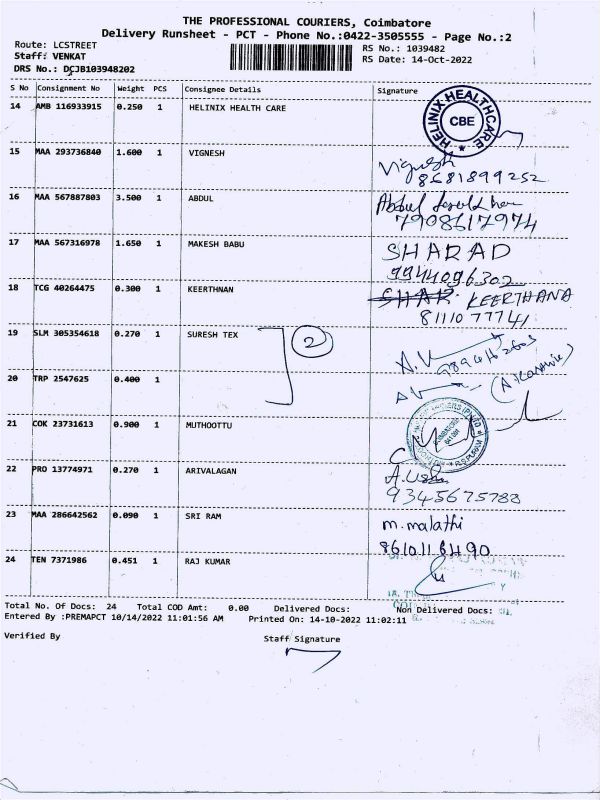 THE PROFESSIONAL COURIERS, Coimbatore
Delivery Runsheet - PCT - Phone No.:0422-3505555 - Page No.:2
Route: LCSTREET
RS No.: 1039482
Staff: VENKAT
RS Date: 14-Oct-2022
DRS No.: DCJB103948202
S No Consignment No Weight PCS Consignee Details Signature
14 AMB 116933915 0.250 1 HELINIX HEALTH CARE
HELINIX HEALTHCARE
CBE
15 MAA 293736840 1.600 1 VIGNESH
Vignesh
8681899252
16 MAA 567887803 3.500 1 ABDUL
Abdul
7908617974
17 MAA 567316978 1.650 1 MAKESH BABU
SHARAD
9944096302
18 TCG 40264475 0.300 1 KEERTHNAN
KEERTHANA
8111077741
19 SLM 305354618 0.270 1 SURESH TEX
2
A.V
20 TRP 2547625 0.400 1
21 COK 23731613 0.900 1 MUTHOOTTU
22 PRO 13774971 0.270 1 ARIVALAGAN
A.Usha
9345675788
23 MAA 286642562 0.090 1 SRI RAM
m. malathi
8610116490
24 TEN 7371986 0.451 1 RAJ KUMAR
Total No. Of Docs: 24 Total COD Amt: 0.00 Delivered Docs: Non Delivered Docs:
Entered By :PREMAPCT 10/14/2022 11:01:56 AM Printed On: 14-10-2022 11:02:11
Verified By
Staff Signature